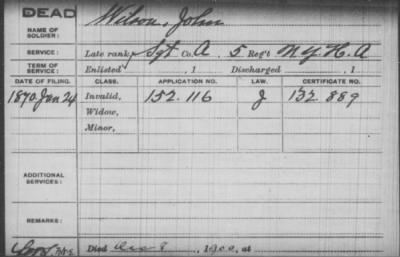 DEAD
Wilson, John
NAME OF SOLDIER:
SERVICE: Late rank, Sgt Co. A 5 Reg't N.Y.H.A
TERM OF SERVICE: Enlisted , 1 Discharged , 1
DATE OF FILING. CLASS. APPLICATION NO. LAW. CERTIFICATE NO.
1870 Jan 24 Invalid, 152.116 J 132.889
Widow,
Minor,
ADDITIONAL SERVICES:
REMARKS:
Died 1900, at